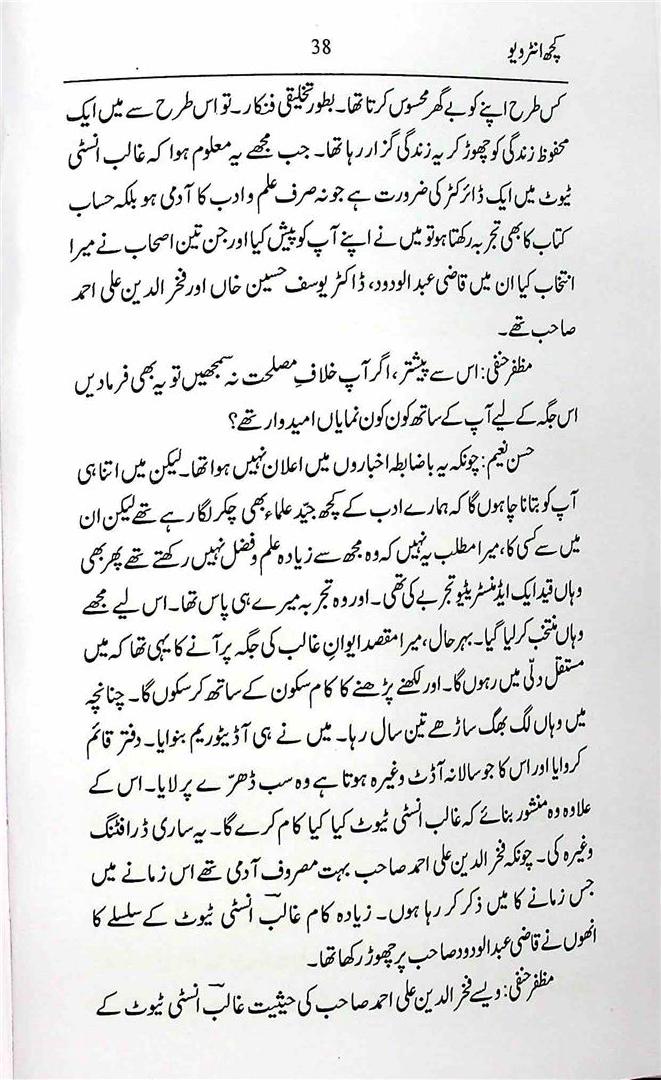 کچھ انٹرویو
38
کس طرح اپنے کو بے گھر محسوس کرتا تھا۔ بطور تخلیقی فنکار۔ تو اس طرح سے میں ایک
محفوظ زندگی کو چھوڑ کر یہ زندگی گزار رہا تھا۔ جب مجھے یہ معلوم ہوا کہ غالب انسٹی
ٹیوٹ میں ایک ڈائرکٹر کی ضرورت ہے جو نہ صرف علم و ادب کا آدمی ہو بلکہ حساب
کتاب کا بھی تجربہ رکھتا ہو تو میں نے اپنے آپ کو پیش کیا اور جن تین اصحاب نے میرا
انتخاب کیا ان میں قاضی عبدالودود، ڈاکٹر یوسف حسین خاں اور فخر الدین علی احمد
صاحب تھے۔
مظفر حنفی: اس سے پیشتر، اگر آپ خلافِ مصلحت نہ سمجھیں تو یہ بھی فرمادیں
اس جگہ کے لیے آپ کے ساتھ کون کون نمایاں امیدوار تھے؟
حسن نعیم: چونکہ یہ باضابطہ اخباروں میں اعلان نہیں ہوا تھا۔ لیکن میں اتنا ہی
آپ کو بتانا چاہوں گا کہ ہمارے ادب کے کچھ جیّد علماء بھی چکر لگا رہے تھے لیکن ان
میں سے کسی کا، میرا مطلب یہ نہیں کہ وہ مجھ سے زیادہ علم و فضل نہیں رکھتے تھے پھر بھی
وہاں قید ایک ایڈمنسٹریٹیو تجربے کی تھی۔ اور وہ تجربہ میرے ہی پاس تھا۔ اس لیے مجھے
وہاں منتخب کر لیا گیا۔ بہر حال، میرا مقصد ایوانِ غالب کی جگہ پر آنے کا یہی تھا کہ میں
مستقل دلّی میں رہوں گا۔ اور لکھنے پڑھنے کا کام سکون کے ساتھ کر سکوں گا۔ چنانچہ
میں وہاں لگ بھگ ساڑھے تین سال رہا۔ میں نے ہی آڈیٹوریم بنوایا۔ دفتر قائم
کروایا اور اس کا جو سالانہ آڈٹ وغیرہ ہوتا ہے وہ سب ڈھرّے پر لایا۔ اس کے
علاوہ وہ منشور بنائے کہ غالب انسٹی ٹیوٹ کیا کیا کام کرے گا۔ یہ ساری ڈرافٹنگ
وغیرہ کی۔ چونکہ فخر الدین علی احمد صاحب بہت مصروف آدمی تھے اس زمانے میں
جس زمانے کا میں ذکر کر رہا ہوں۔ زیادہ کام غالبؔ انسٹی ٹیوٹ کے سلسلے کا
انھوں نے قاضی عبدالودود صاحب پر چھوڑ رکھا تھا۔
مظفر حنفی: ویسے فخر الدین علی احمد صاحب کی حیثیت غالبؔ انسٹی ٹیوٹ کے